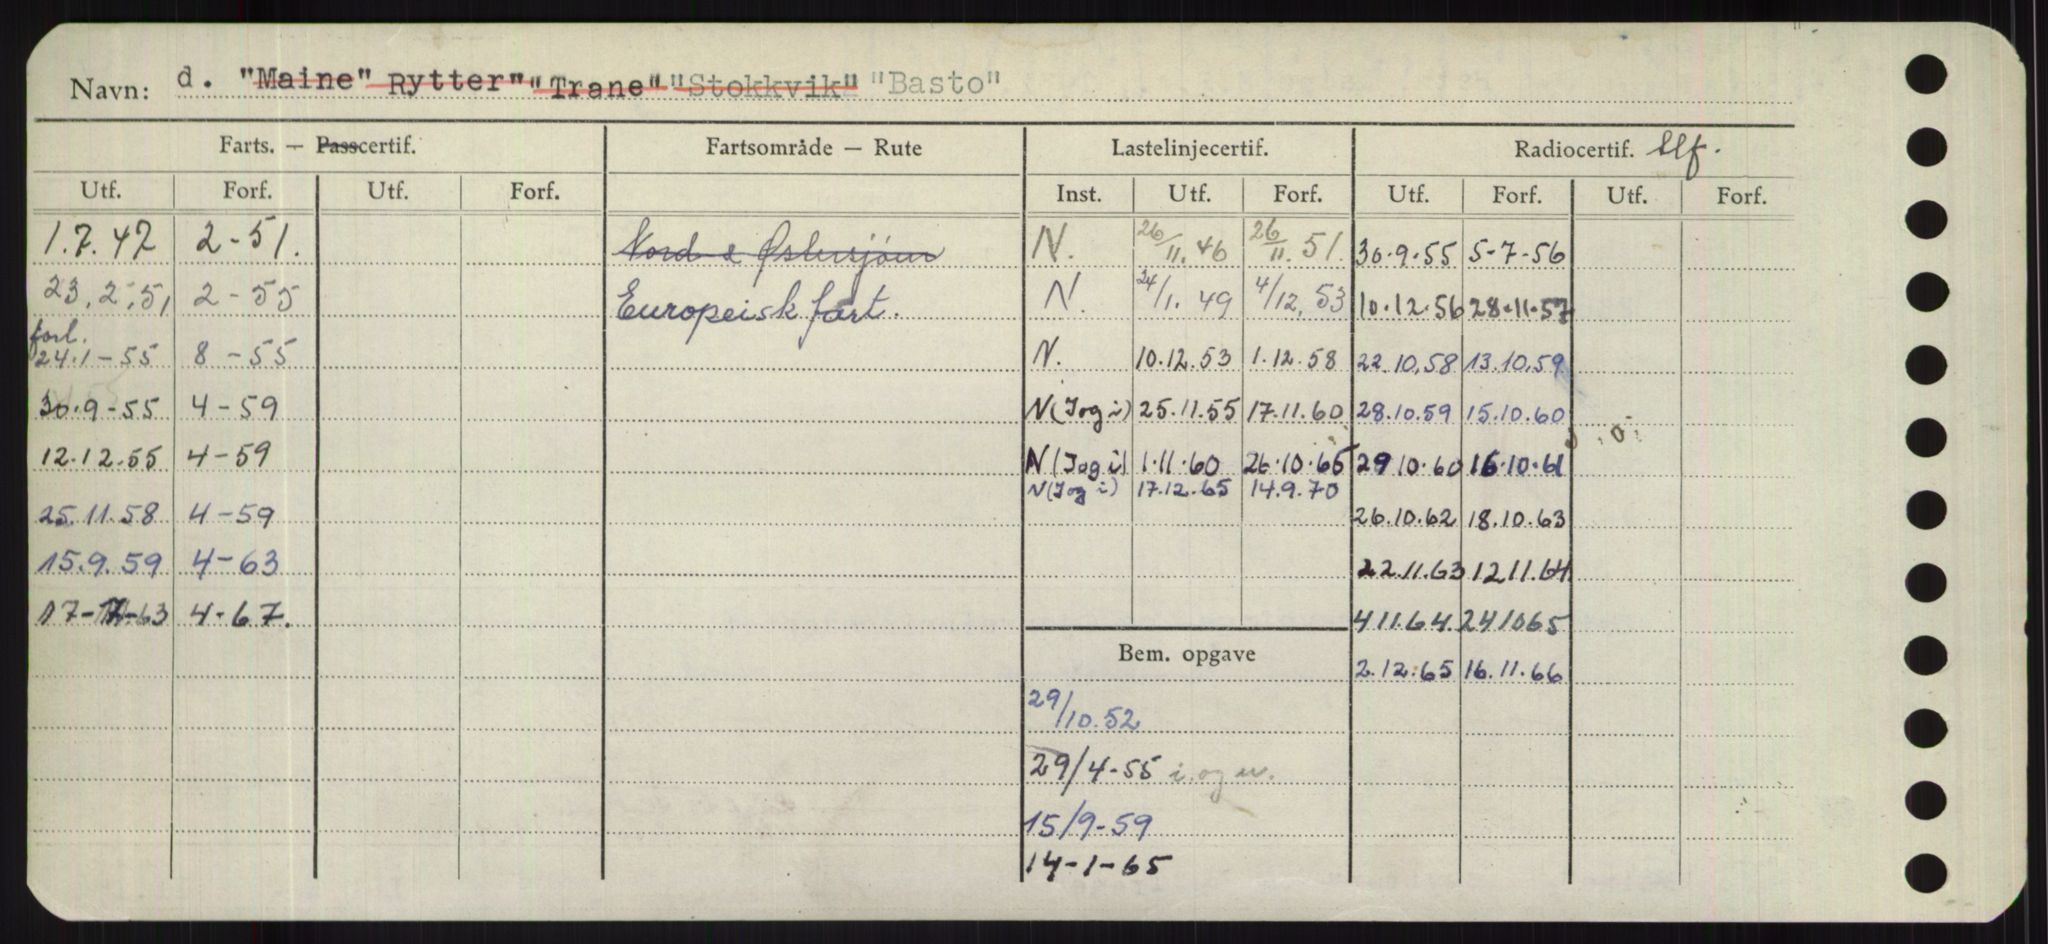 Navn: d. "Maine" Rytter" "Trane" "Stokkvik" "Basto"
Farts. — Passcertif. Fartsområde — Rute Lastelinjecertif. Radiocertif. tlf.
Utf. Forf. Utf. Forf. Inst. Utf. Forf. Utf. Forf. Utf. Forf.
1.7.47 2-51. Nord & Østersjøen N. 26/11.46 26/11.51. 30.9.55 5-7-56
23.2.51 2-55 Europeisk fart. N. 24/1.49 4/12.53 10.12.56 28.11.57
forl.
24.1-55 8-55 N. 10.12.53 1.12.58 22.10.58 13.10.59
30.9-55 4-59 N (I og i) 25.11.55 17.11.60 28.10.59 15.10.60
12.12.55 4-59 N (I og i) 1.11.60 26.10.65 29 10.60 16.10.61
N (I og i) 17.12.65 14.9.70
25.11.58 4-59 26.10.62 18.10.63
15.9.59 4-63 22.11.63 12 11.64
17- -63 4-67. 4 11.64. 24 10 65
Bem. opgave 2.12.65 16.11.66
29/10.52
29/4-55 i. og u.
15/9-59
14-1-65